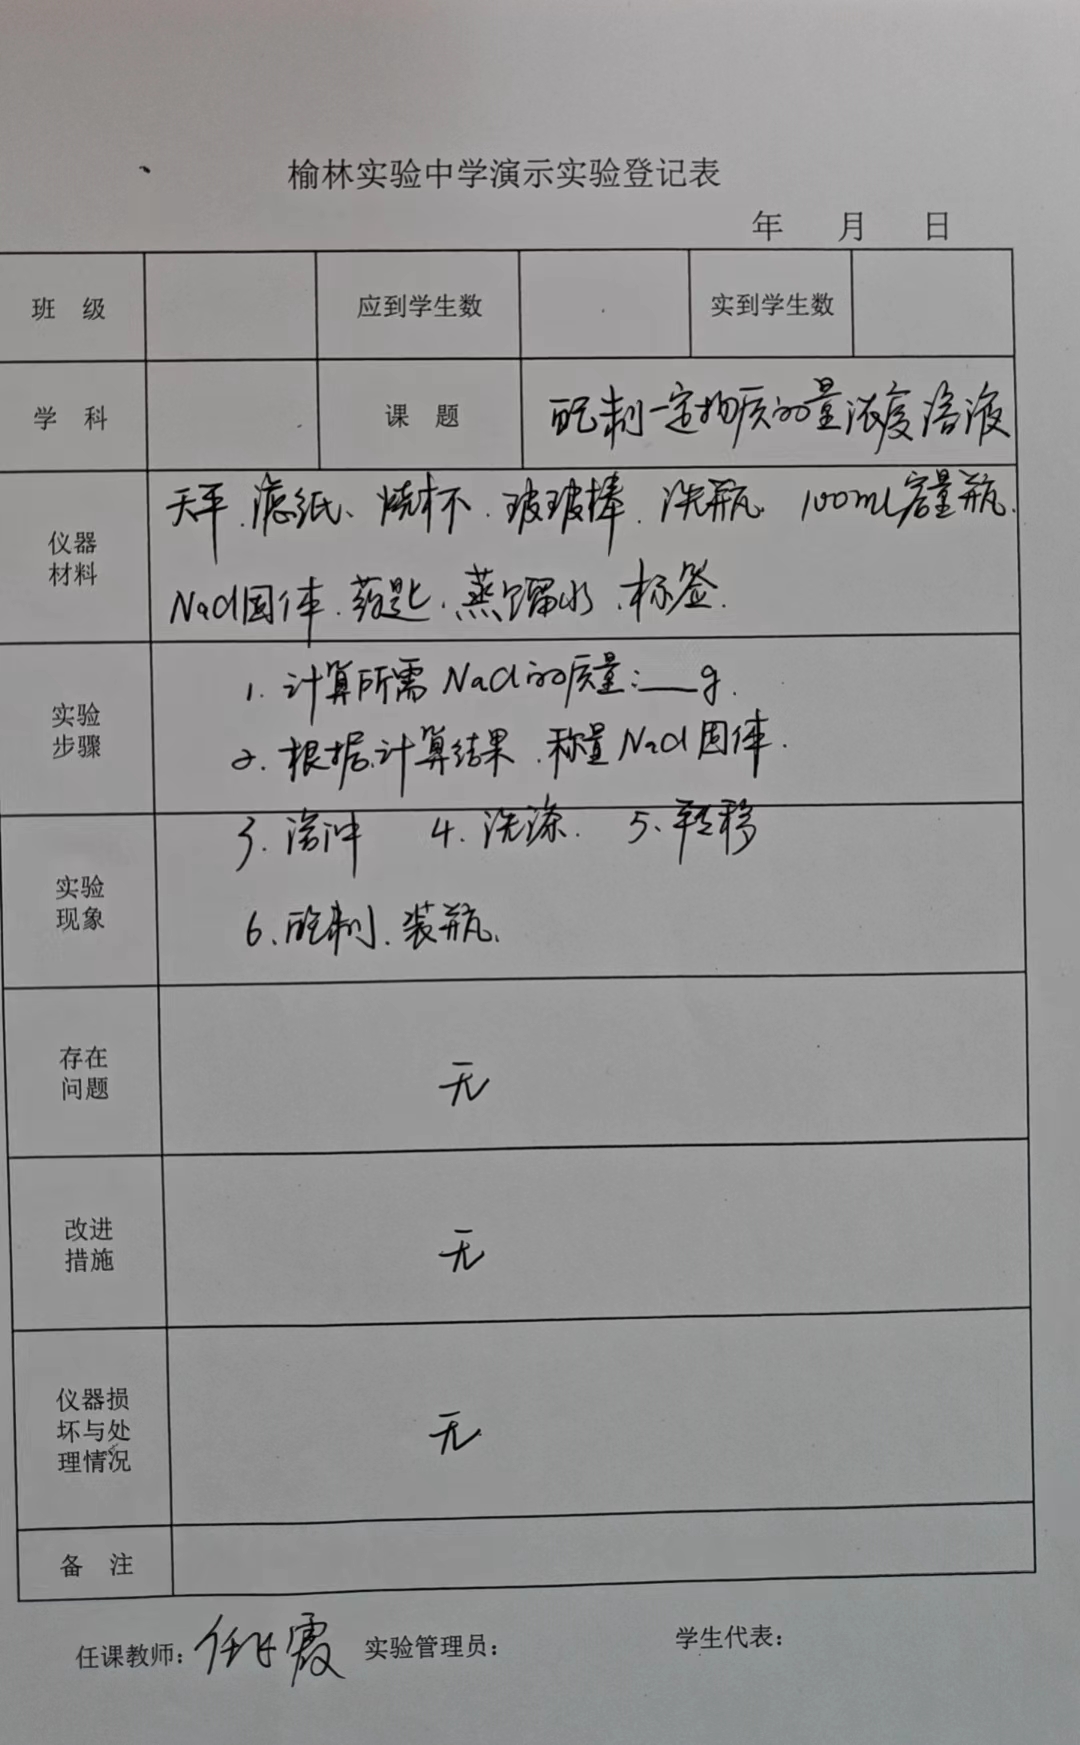 榆林实验中学演示实验登记表
年 月 日
班 级 应到学生数 实到学生数
学 科 课 题 配制一定物质的量浓度溶液
仪器材料 天平、滤纸、烧杯、玻玻棒、洗瓶、100mL容量瓶、
NaCl固体、药匙、蒸馏水、标签.
实验步骤 1. 计算所需NaCl的质量:__g.
2. 根据计算结果、称量NaCl固体.
实验现象 3. 溶冲 4. 洗涤. 5、转移
6、配制、装瓶、
存在问题 无
改进措施 无
仪器损坏与处理情况 无
备 注
任课教师: 实验管理员: 学生代表: